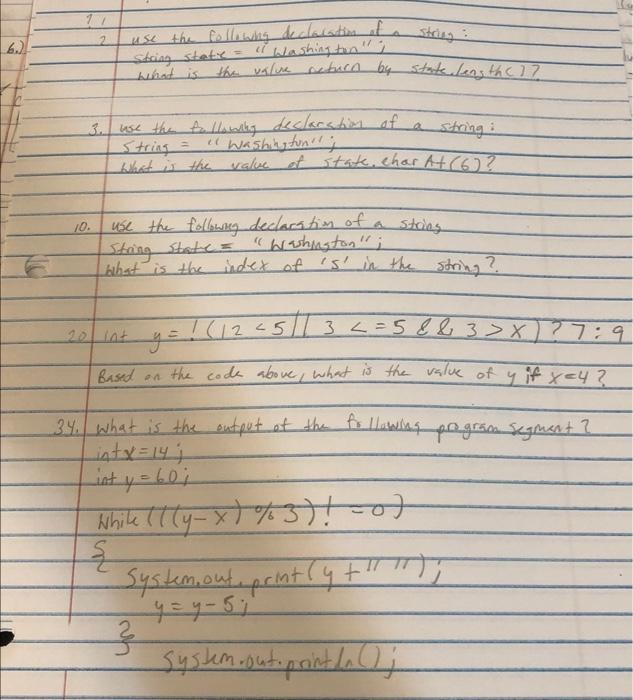 6.)
2 use the following declaration of a string:
String state = "Washington";
What is the value return by state.length()?
3. use the following declaration of a string:
String = "Washington";
What is the value of state.char At(6)?
10. use the following declaration of a string
String State = "Washington";
What is the index of 's' in the string?
20 int y = !(12 < 5 || 3 <= 5 && 3 > x) ? 7 : 9
Based on the code above, what is the value of y if x=4?
34. What is the output of the following program segment?
int x = 14;
int y = 60;
While (((y-x) % 3) != 0)
{
System.out.print(y + " ");
y = y - 5;
}
System.out.println();